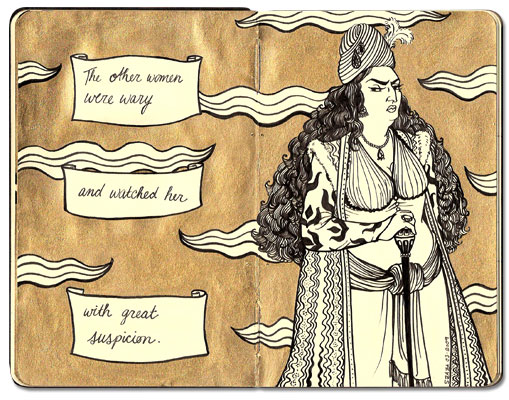 The other women
were wary
and watched her
with great
suspicion.